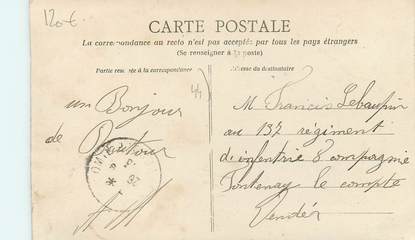 120€
CARTE POSTALE
La correspondance au recto n'est pas acceptée par tous les pays étrangers
(Se renseigner à la poste)
Partie réservée à la correspondance
Adresse du destinataire
un Bonjour
de
M Francis Lebaupin
au 137 régiment
d'infentrie 8 compagnie
Fontenay le compte
Vendér